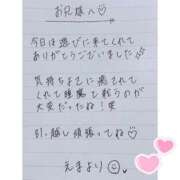 お兄様へ♡
今日は遊びに来てくれて
ありがとうございました
気持ちよさに負されて
くれて理性を保つのが
大変だったね！笑
引っ越し頑張ってね♡
えまより